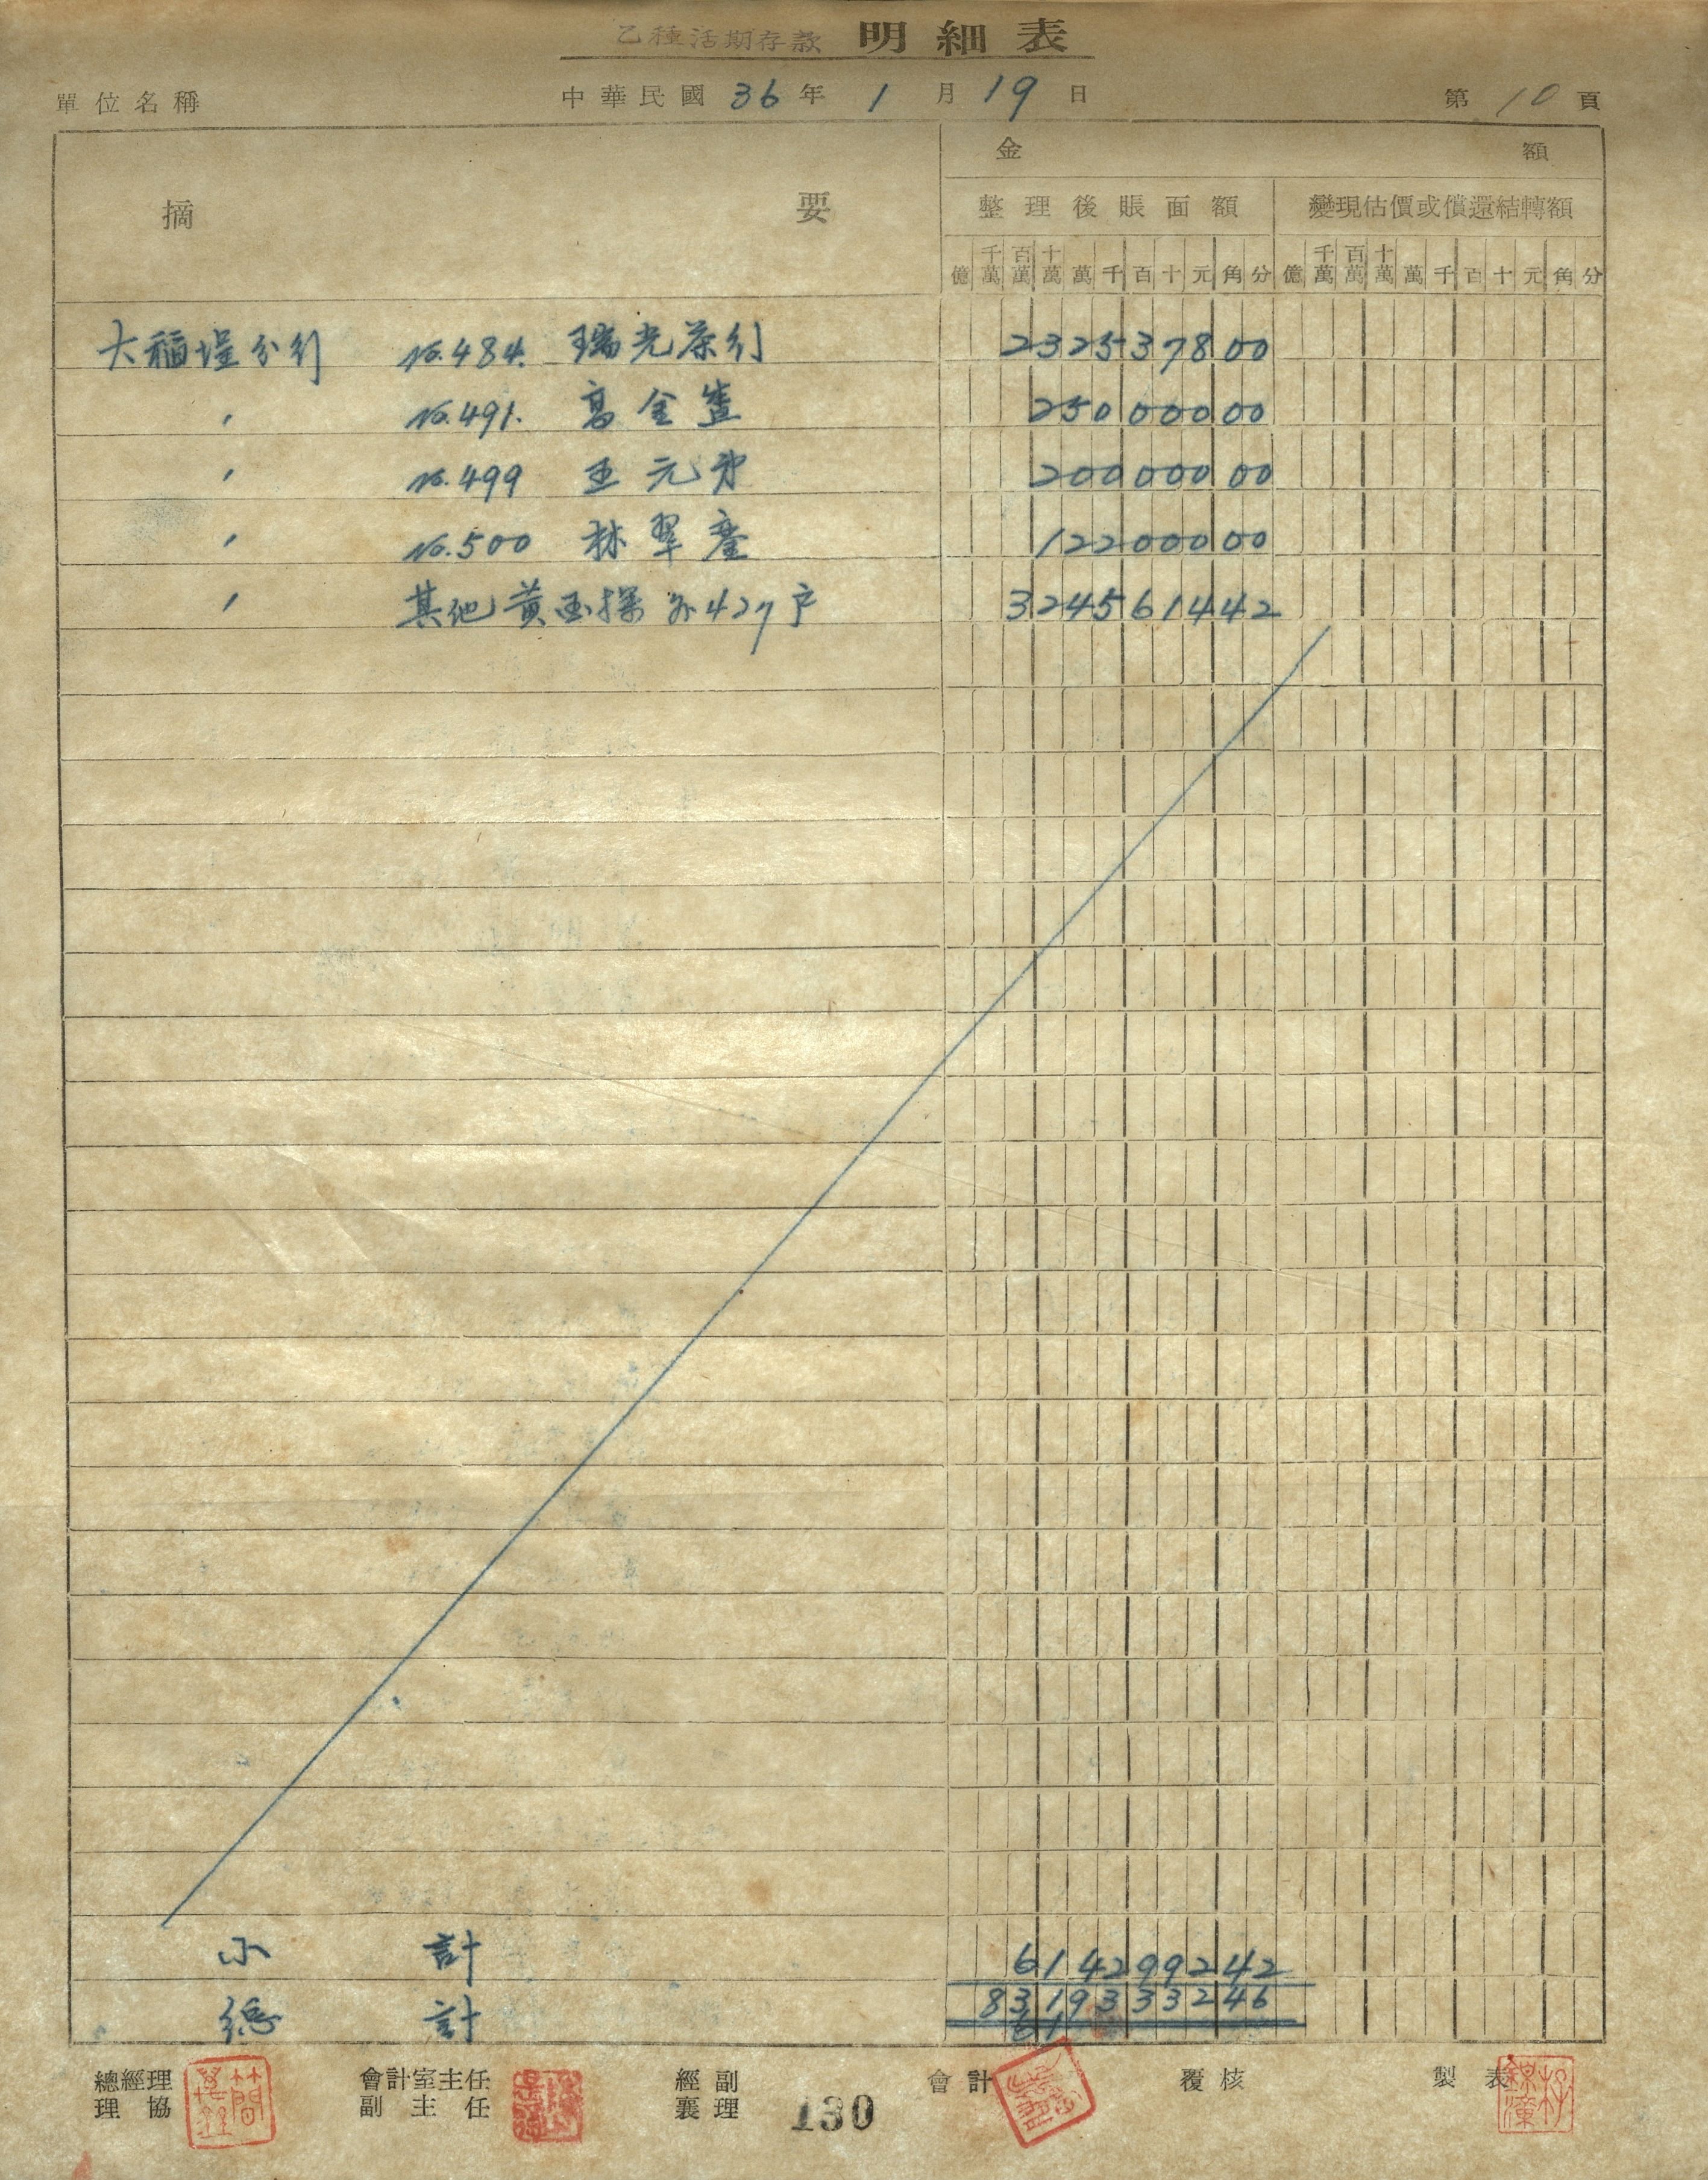 乙種活期存款 明細表
單位名稱 中華民國 36 年 1 月 19 日 第 10 頁
摘 要 金 額
整理後賬面額 變現估價或償還結轉額
億 千萬 百萬 十萬 萬 千 百 十 元 角 分 億 千萬 百萬 十萬 萬 千 百 十 元 角 分
大稲埕分行 No.484. 瑞光茶行 2325378 00
〃 No.491. 高金 250000 00
〃 No.499 王元 200000 00
〃 No.500 林翠 122000 00
〃 其他黃 外427戶 3245614 42
小 計 6142992 42
總 計 83193332 46
61
總經理 會計室主任 經副 會計 覆核 製表
理協 副主任 襄理
130